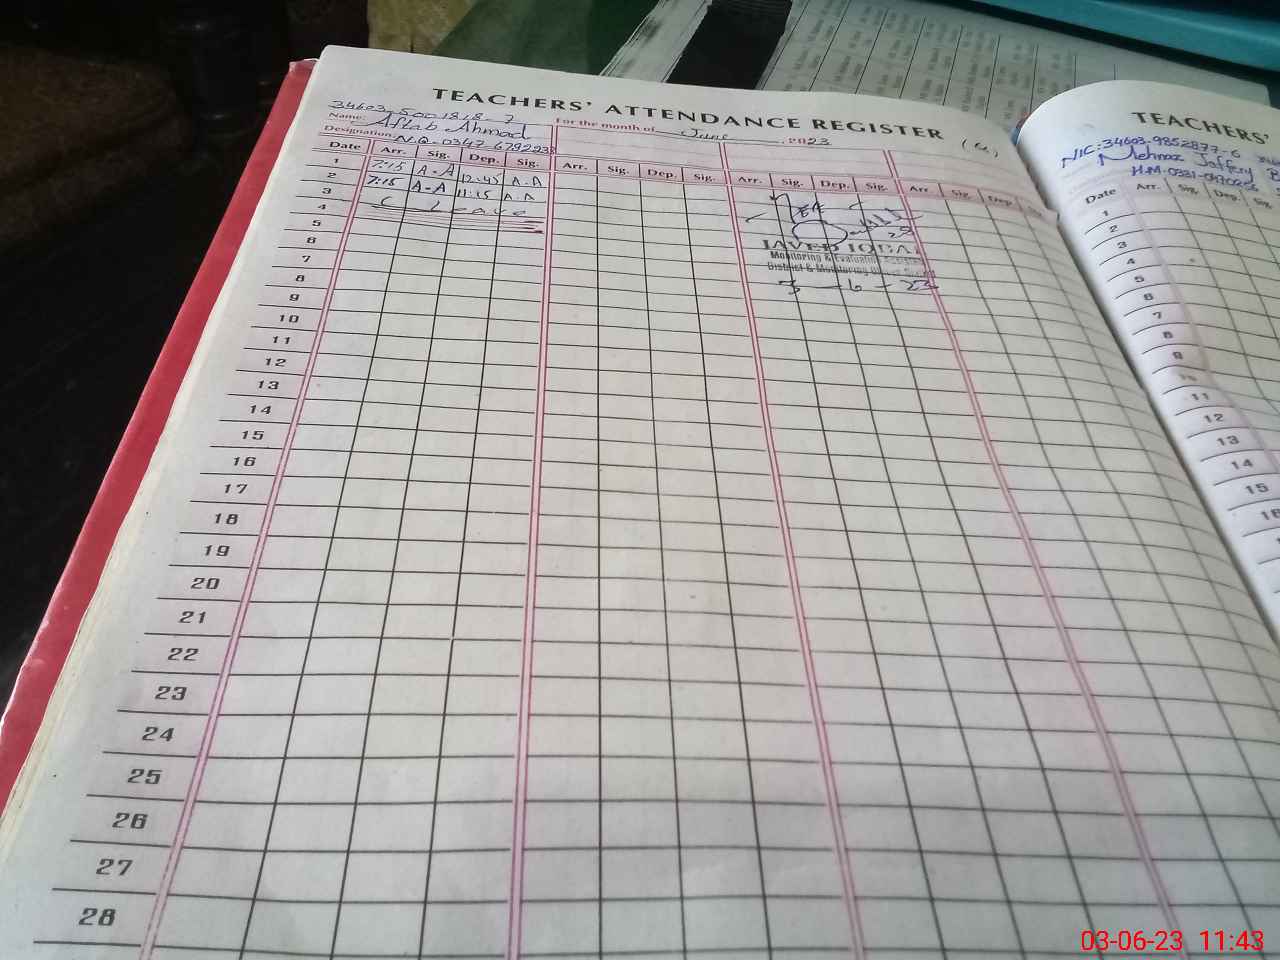 TEACHERS' ATTENDANCE REGISTER
34603-5001818-7
Name: Aftab Ahmad
For the month of June 2023
Designation: N.Q. 0347-6792938
Date Arr. Sig. Dep. Sig. Arr. Sig. Dep. Sig. Arr. Sig. Dep. Sig. Arr. Sig. Dep. Sig.
1 7:15 A-A 12:45 A.A
2 7:15 A-A 11:15 A.A
3 C Leave
4
5
6
7
8
9
10
11
12
13
14
15
16
17
18
19
20
21
22
23
24
25
26
27
28
JAVED IQBAL
Monitoring & Evaluation
District & Monitoring
3-6-23
TEACHERS'
NIC: 34603-9852877-6
Mehnaz Jaffery
H.M-0331-
Date Arr. Sig. Dep. Sig.
1
2
3
4
5
6
7
8
9
10
11
12
13
14
15
16
03-06-23 11:43